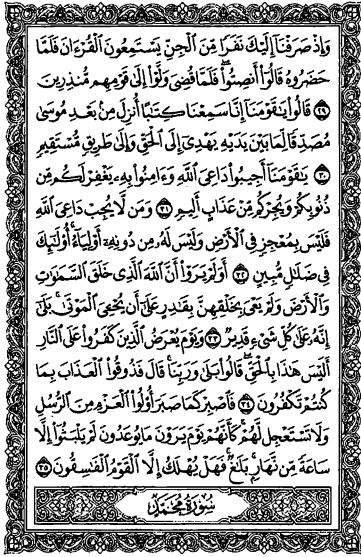 وَإِذْ صَرَفْنَآ إِلَيْكَ نَفَرًا مِّنَ ٱلْجِنِّ يَسْتَمِعُونَ ٱلْقُرْءَانَ فَلَمَّا
حَضَرُوهُ قَالُوٓا۟ أَنصِتُوا۟ فَلَمَّا قُضِىَ وَلَّوْا۟ إِلَىٰ قَوْمِهِم مُّنذِرِينَ
٢٩ قَالُوا۟ يَٰقَوْمَنَآ إِنَّا سَمِعْنَا كِتَٰبًا أُنزِلَ مِنۢ بَعْدِ مُوسَىٰ
مُصَدِّقًا لِّمَا بَيْنَ يَدَيْهِ يَهْدِىٓ إِلَى ٱلْحَقِّ وَإِلَىٰ طَرِيقٍ مُّسْتَقِيمٍ
٣٠ يَٰقَوْمَنَآ أَجِيبُوا۟ دَاعِىَ ٱللَّهِ وَءَامِنُوا۟ بِهِۦ يَغْفِرْ لَكُم مِّن
ذُنُوبِكُمْ وَيُجِرْكُم مِّنْ عَذَابٍ أَلِيمٍ ٣١ وَمَن لَّا يُجِبْ دَاعِىَ ٱللَّهِ
فَلَيْسَ بِمُعْجِزٍ فِى ٱلْأَرْضِ وَلَيْسَ لَهُۥ مِن دُونِهِۦٓ أَوْلِيَآءُ أُو۟لَٰٓئِكَ
فِى ضَلَٰلٍ مُّبِينٍ ٣٢ أَوَلَمْ يَرَوْا۟ أَنَّ ٱللَّهَ ٱلَّذِى خَلَقَ ٱلسَّمَٰوَٰتِ
وَٱلْأَرْضَ وَلَمْ يَعْىَ بِخَلْقِهِنَّ بِقَٰدِرٍ عَلَىٰٓ أَن يُحْۦِىَ ٱلْمَوْتَىٰ بَلَىٰٓ
إِنَّهُۥ عَلَىٰ كُلِّ شَىْءٍ قَدِيرٌ ٣٣ وَيَوْمَ يُعْرَضُ ٱلَّذِينَ كَفَرُوا۟ عَلَى ٱلنَّارِ
أَلَيْسَ هَٰذَا بِٱلْحَقِّ قَالُوا۟ بَلَىٰ وَرَبِّنَا قَالَ فَذُوقُوا۟ ٱلْعَذَابَ بِمَا
كُنتُمْ تَكْفُرُونَ ٣٤ فَٱصْبِرْ كَمَا صَبَرَ أُو۟لُوا۟ ٱلْعَزْمِ مِنَ ٱلرُّسُلِ
وَلَا تَسْتَعْجِل لَّهُمْ كَأَنَّهُمْ يَوْمَ يَرَوْنَ مَا يُوعَدُونَ لَمْ يَلْبَثُوٓا۟ إِلَّا
سَاعَةً مِّن نَّهَارٍۭ بَلَٰغٌ فَهَلْ يُهْلَكُ إِلَّا ٱلْقَوْمُ ٱلْفَٰسِقُونَ ٣٥
سُورَةُ مُحَمَّدٍ